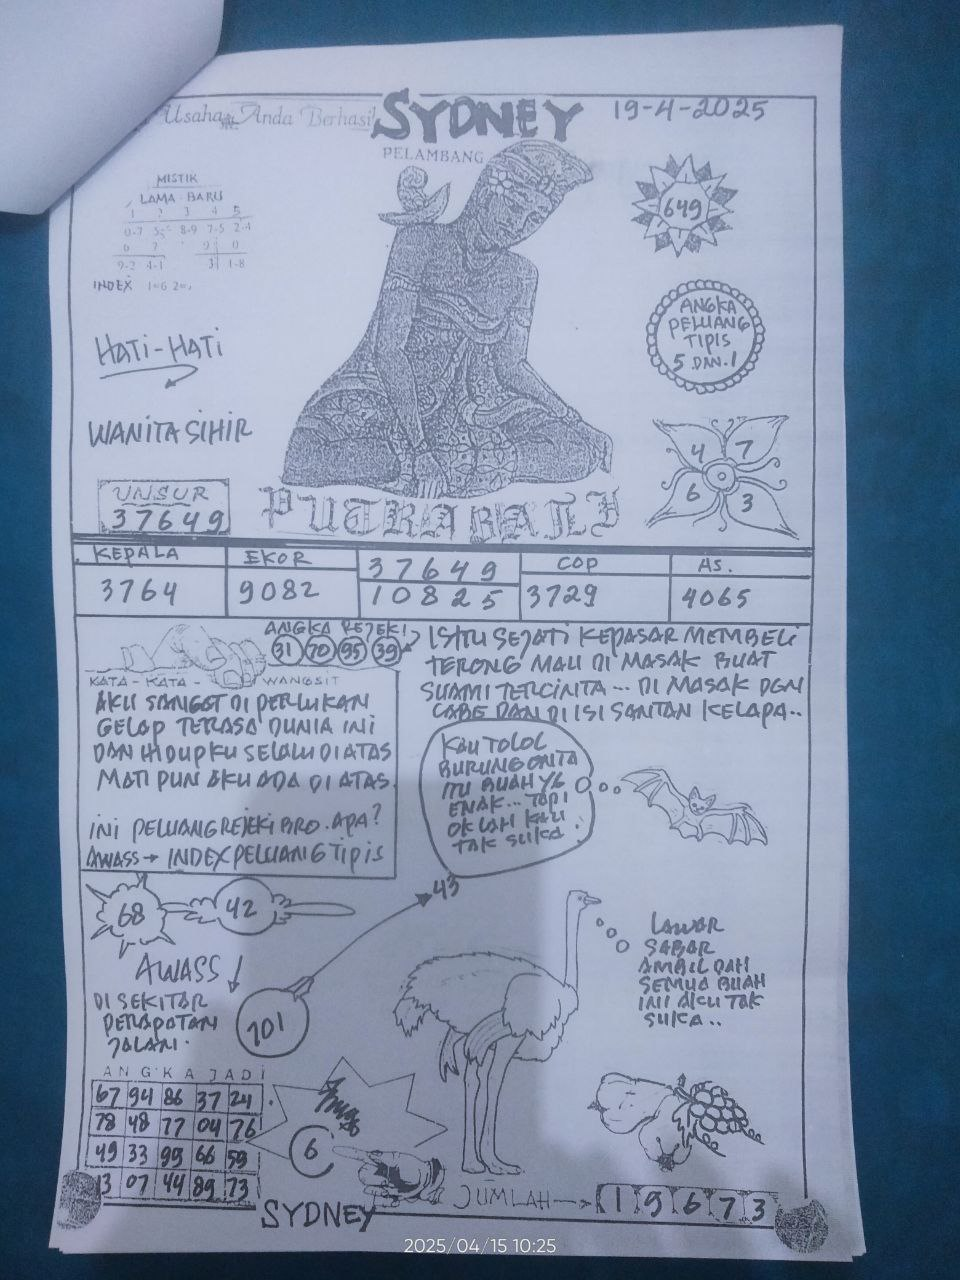 Usaha Anda Berhasil
SYDNEY
19-4-2025
PELAMBANG
MISTIK
LAMA - BARU
1 2 3 4 5
0-7 5 8-9 7-5 2-4
6 7 9 0
9-2 4-1 3 1-8
INDEX 1=6 2=
649
ANGKA
PELUANG
TIPIS
5 DAN.1
HATI-HATI
WANITA SIHIR
4 7
6 3
UNSUR
37649
PUTRA BALI
KEPALA
3764
EKOR
9082
37649
10825
COP
3729
AS.
4065
ANGKA REJEKI
31 70 95 39
KATA - KATA - WANGSIT
AKU SANGAT DI PERLUKAN
GELAP TERASA DUNIA INI
DAN HIDUPKU SELALU DI ATAS
MATI PUN AKU ADA DI ATAS.
INI PELUANG REJEKI BRO. APA?
AWASS → INDEX PELUANG TIPIS
ISTRI SEJATI KEPASAR MEMBELI
TERONG MAU DI MASAK BUAT
SUAMI TERCINTA ... DI MASAK DGN
CABE DAN DI ISI SANTAN KELAPA..
KAU TOLOL
BURUNG ONTA
ITU BUAH YG
ENAK... TAPI
OK LAH KAU
TAK SUKA.
68
42
43
AWASS
DI SEKITAR
PERAPATAN
JALAN.
101
LAWAR
SABAR
AMBIL DAH
SEMUA BUAH
INI AKU TAK
SUKA..
ANGKA JADI
67 94 86 37 24
78 48 77 04 76
49 33 99 66 59
13 07 44 89 73
6
SYDNEY
JUMLAH → 19673
2025/04/15 10:25